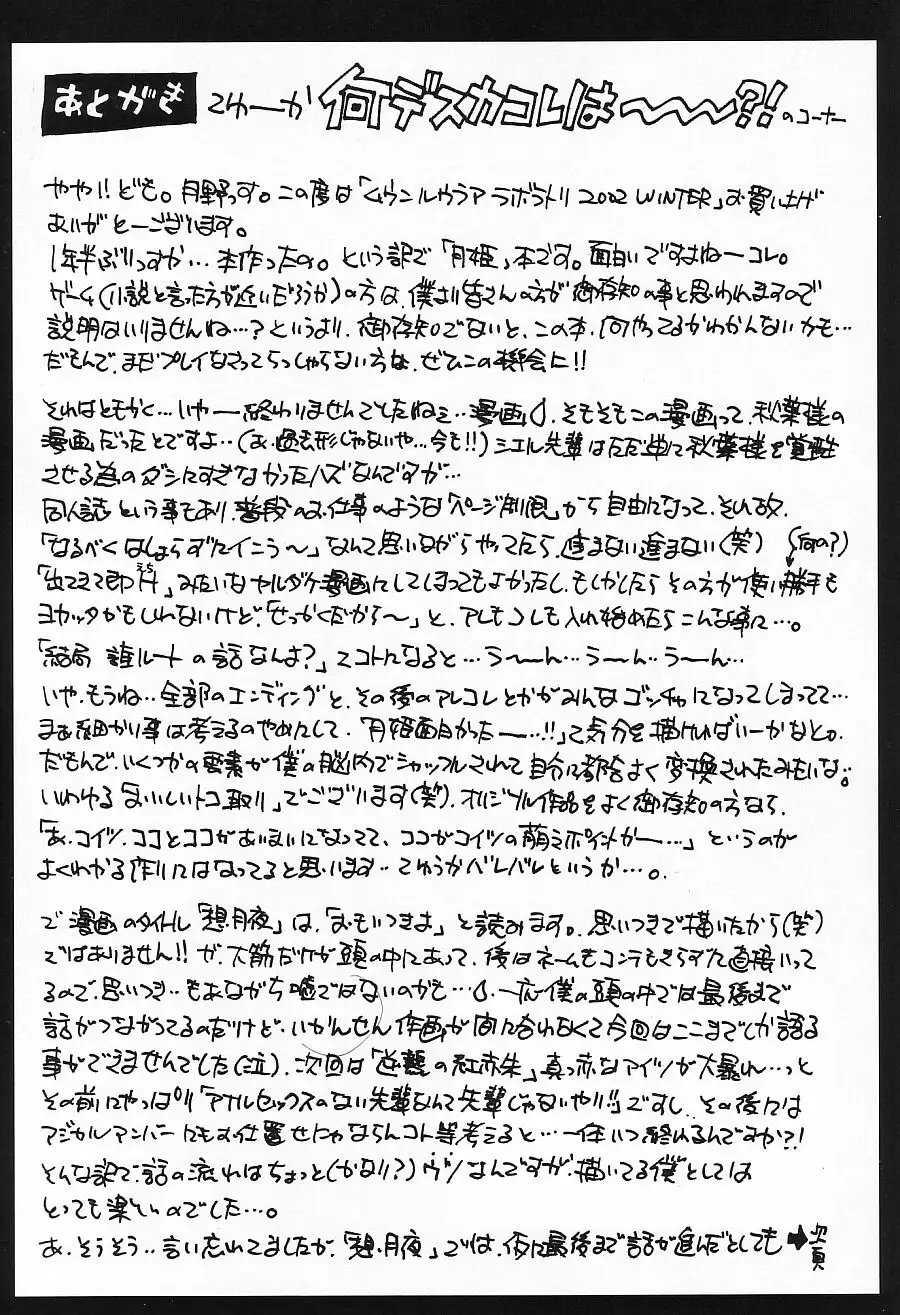 あとがき てゆーか 何デスカコレは〜〜〜?! のコーナー
やや!! ども。月野っす。この度は「ムウンルウラア ラボラトリ 2002 WINTER」お買い上げ
ありがとーございます。
1年半ぶりっすか…本作ったの。という訳で「月姫」本です。面白いですよねーコレ。
ゲーム(小説と言った方が近いだろうか)の方は、僕より皆さんの方が御存知の事と思われますので
説明はいりませんね…?というより、御存知でないと、この本、何やってるかわかんないかも…
だもんで、まだプレイなさってらっしゃらない方は、ぜひこの機会に!!
それはともかく…いやー終わりませんでしたねェ…漫画。そもそもこの漫画って、秋葉様の
漫画だったとですよ…(あ、過去形じゃないや…今も!!)シエル先輩はただ単に秋葉様を覚醒
させる為のダシにすぎなかったハズなんですが…
同人誌という事もあり、普段のお仕事のような「ページ制限」から自由になって、それ故、
「なるべくはしょらずにイこう〜」なんて思いながらやってたら、進まない進まない(笑) (何の?)
「出てきて即H」みたいなヤルダケ漫画にしてしまってもよかったし、もしかしたらその方が使い勝手も
ヨカッタかもしれないけど、「せっかくだから〜」と、アレもコレも入れ始めたらこんな事に…。
「結局 誰ルートの話なんよ?」てコトになると…う〜〜ん…う〜ん‥う〜ん…
いや、もうね‥全部のエンディングと、その後のアレコレとかがみんなゴッチャになってしまってて…
まぁ細かい事は考えるのやめにして、「月姫面白かったー…!!」て気分を描ければいーかなとか。
だもんで、いくつかの要素が僕の脳内でシャッフルされて自分に都合よく変換されたみたいな。
いわゆる「おいしいトコ取り」でございます(笑)。オリジナル作品をよく御存知の方なら、
「あ、コイツ、ココとココがあいまいになってて、ココがコイツの萌えポイントかー…」というのが
よくわかる作りにはなってると思います‥てゆうかバレバレというか…。
で漫画のタイトル「想月夜」は、「おもいつきよ」と読みます。思いつきで描いたから(笑)
ではありません!!が、大筋だけが頭の中にあって、後はネームもコンテもきらずに直接いって
るので、思いつき‥もあながち嘘ではないのかも…。一応僕の頭の中では最後まで
話がつながってるのだけど、いかんせん作画が間に合わなくて今回はここまでしか語る
事ができませんでした(泣)。次回は「逆襲の紅赤朱」真っ赤なアイツが大暴れ…っと
その前にやっぱり「アナルセックスのない先輩なんて先輩じゃないやい!!」ですし、その後には
アジカルアンバーにもお仕置せにゃならんコト等考えると…一体いつ終わるんですか?!
そんな訳で、話の流れはちょっと(かなり?)ウソなんですが、描いてる僕としては
とっても楽しいのでした…。
あ、そうそう‥言い忘れてましたが、「想月夜」では、仮に最後まで話が進んだとしても➡次頁